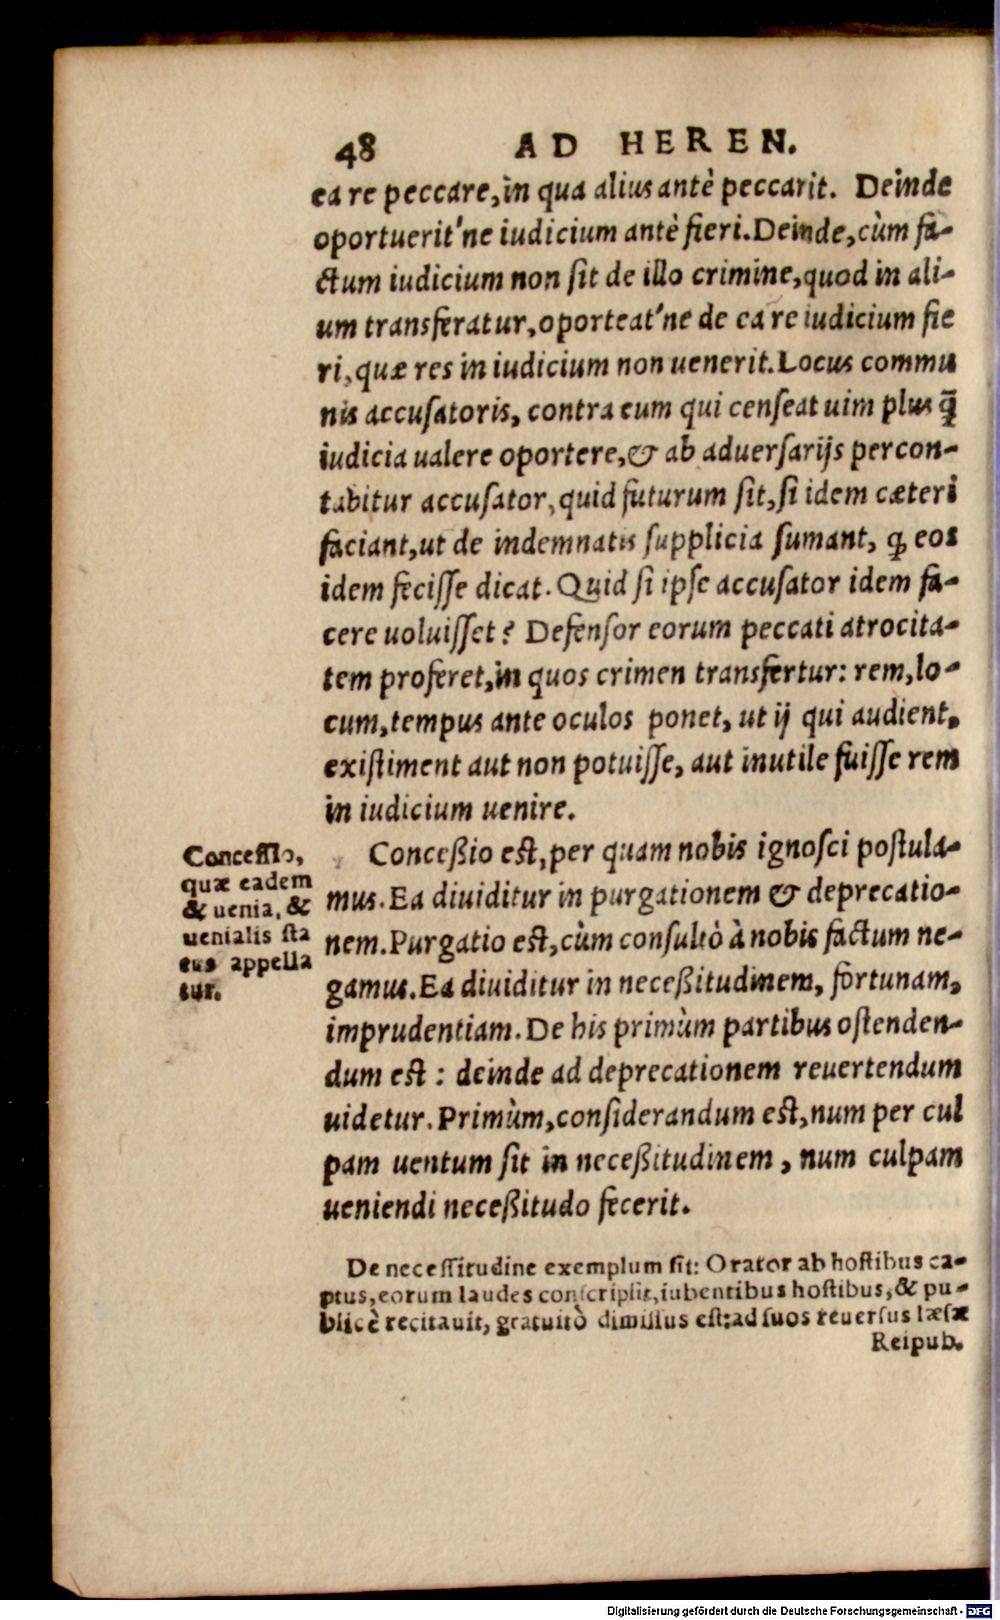 48 AD HEREN.
ea re peccare, in qua alius antè peccarit. Deinde
oportuerit'ne iudicium antè fieri. Deinde, cùm fa-
ctum iudicium non sit de illo crimine, quod in ali-
um transferatur, oporteat'ne de ea re iudicium fie
ri, quæ res in iudicium non uenerit. Locus commu
nis accusatoris, contra eum qui censeat uim plus q̃
iudicia ualere oportere, & ab aduersarijs percon-
tabitur accusator, quid futurum sit, si idem cæteri
faciant, ut de indemnatis supplicia sumant, ꝙ eos
idem fecisse dicat. Quid si ipse accusator idem fa-
cere uoluisset? Defensor eorum peccati atrocita-
tem proferet, in quos crimen transfertur: rem, lo-
cum, tempus ante oculos ponet, ut ij qui audient,
existiment aut non potuisse, aut inutile fuisse rem
in iudicium uenire.
Concessio,
quæ eadem
& uenia, &
uenialis sta
tus appella
tur.
Conceßio est, per quam nobis ignosci postula-
mus. Ea diuiditur in purgationem & deprecatio-
nem. Purgatio est, cùm consultò à nobis factum ne-
gamus. Ea diuiditur in neceßitudinem, fortunam,
imprudentiam. De his primùm partibus ostenden-
dum est: deinde ad deprecationem reuertendum
uidetur. Primùm, considerandum est, num per cul
pam uentum sit in neceßitudinem, num culpam
ueniendi neceßitudo fecerit.
De necessitudine exemplum sit: Orator ab hostibus ca-
ptus, eorum laudes conscripsit, iubentibus hostibus, & pu-
blicè recitauit, gratuitò dimissus est: ad suos reuersus læsæ
Reipub.
Digitalisierung gefördert durch die Deutsche Forschungsgemeinschaft - DFG